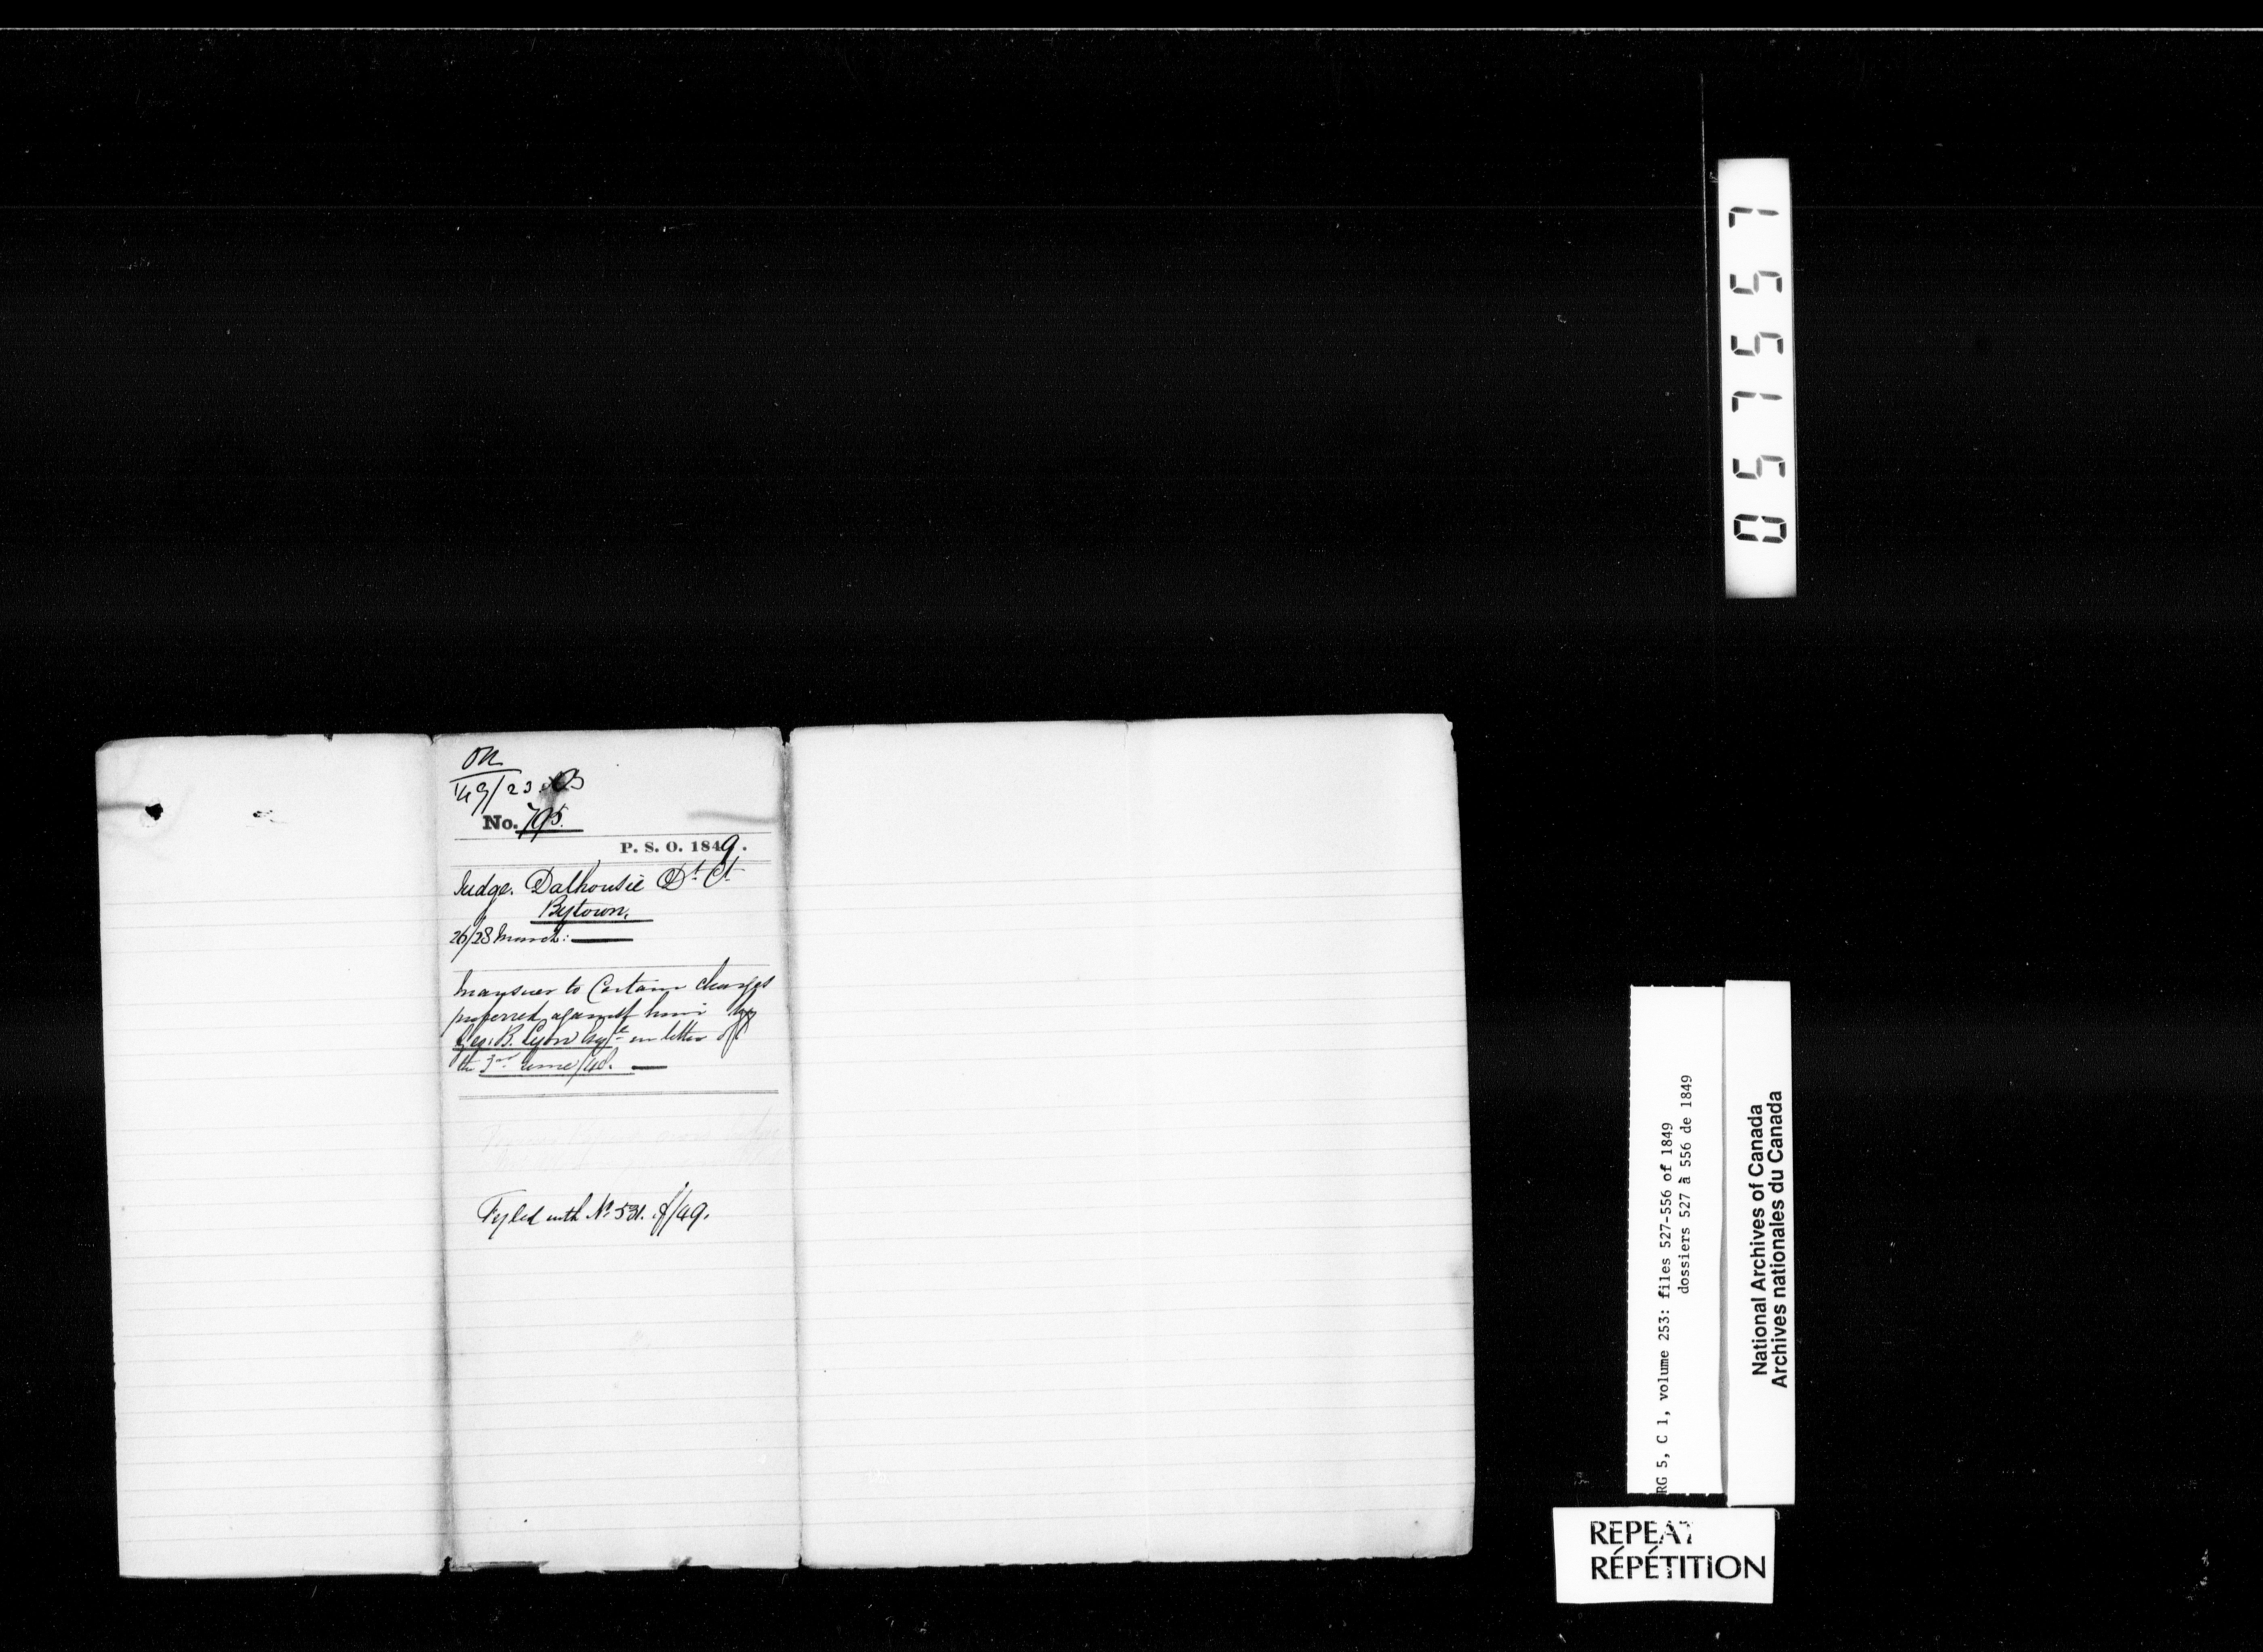 No. 795.
P. S. O. 1849.
Judge. Dalhousie Dt. Ct.
Bytown.
26/28 March:
In answer to Certain charges
preferred against him by
Geo: B. Lyon Esqre in letter of
the 3rd June/48.
Fyled with No. 531. of/49.
057557
RG 5, C 1, volume 253: files 527-556 of 1849
dossiers 527 à 556 de 1849
National Archives of Canada
Archives nationales du Canada
REPEAT
RÉPÉTITION